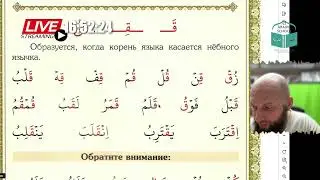 LIVE 16:52:24
STREAMING
قَـ ـقِـ
Образуется, когда корень языка касается нёбного язычка.
زُقْ قِنْ قُلْ قُمْ قِفْ قِهْ قَلْبُ
قَبْلُ فَوْقُ قَلَمُ قَمَرُ لَقَبُ قُمْقُمُ
اِقْتَرَبَ يَقْتَرِبُ اِنْقَلَبَ يَنْقَلِبُ
Обратите внимание: